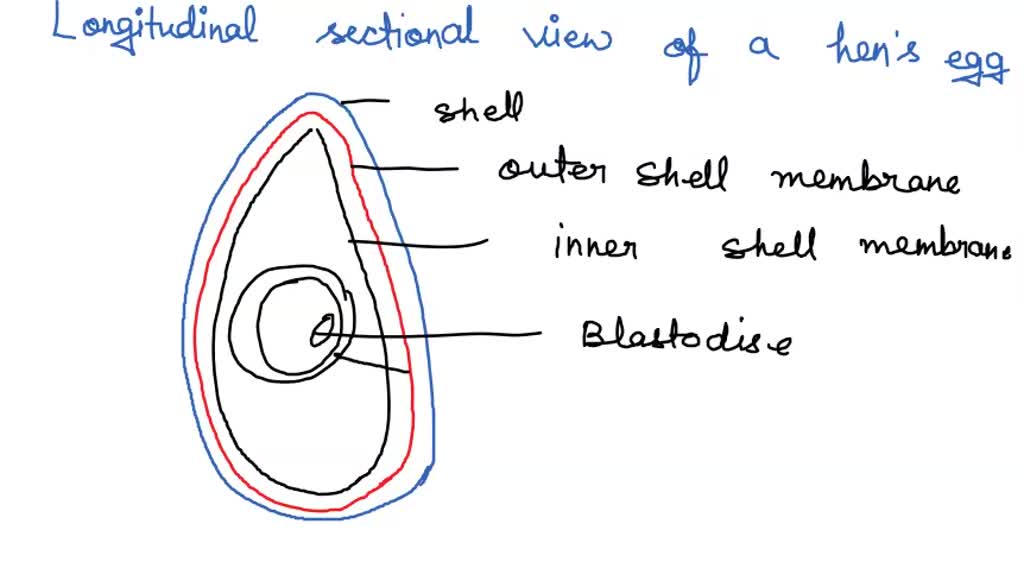 Longitudinal sectional view of a hen's egg
shell
outer shell membrane
inner shell membrane
Blastodise